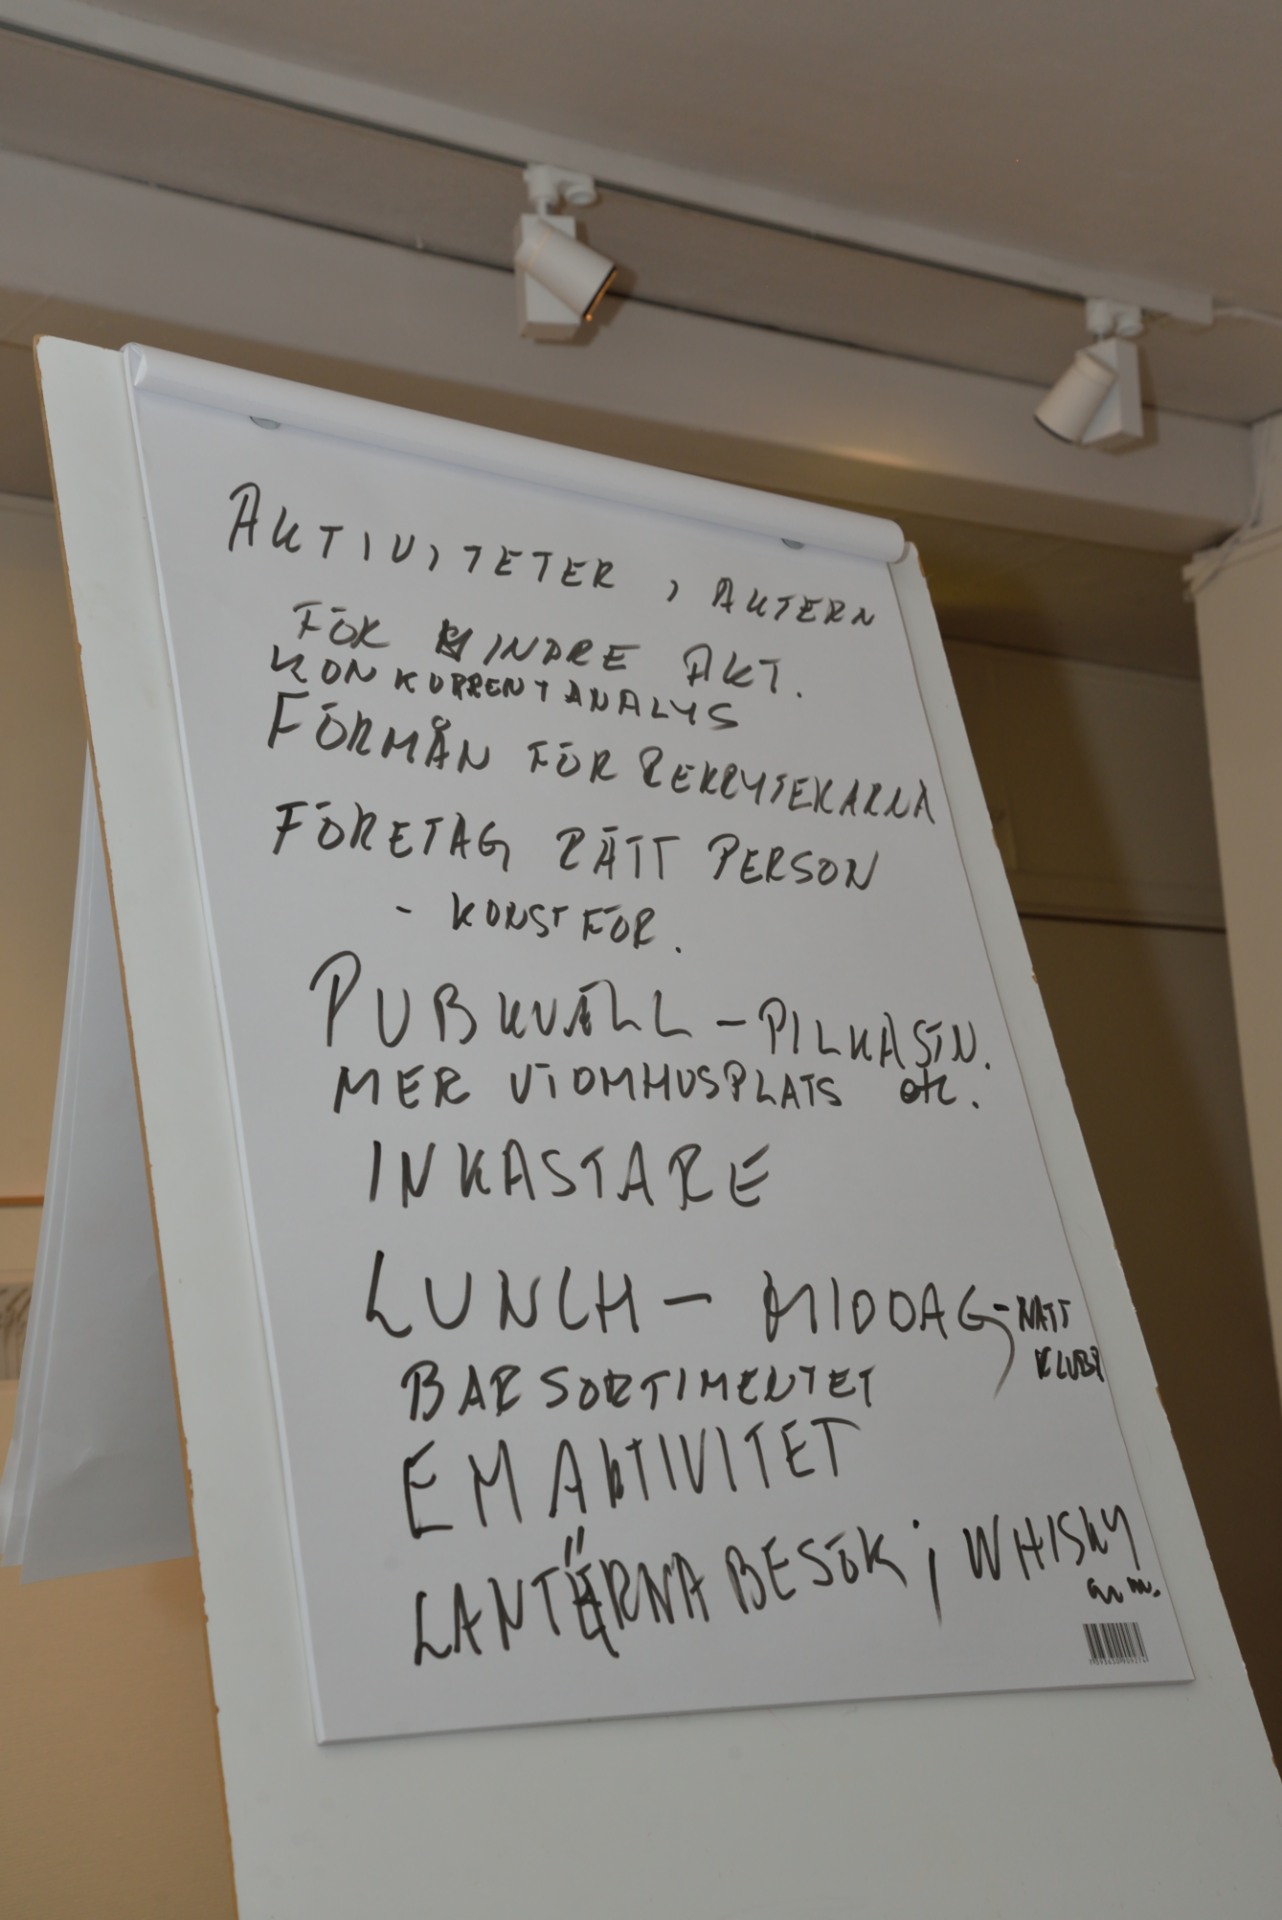 AKTIVITETER, AKTERN
FÖR MINDRE AKT.
KONKURRENTANALYS
FÖRMÅN FÖR REKRYTERARNA
FÖRETAG RÄTT PERSON
- KONSTFÖR.
PUBKVÄLL - PILKASTN.
MER UTOMHUSPLATS etc.
INKASTARE
LUNCH - MIDDAG - NATT
KLUBB
BARSORTIMENTET
EM AKTIVITET
LANTÄRNA BESÖK; WHISKY
m.m.